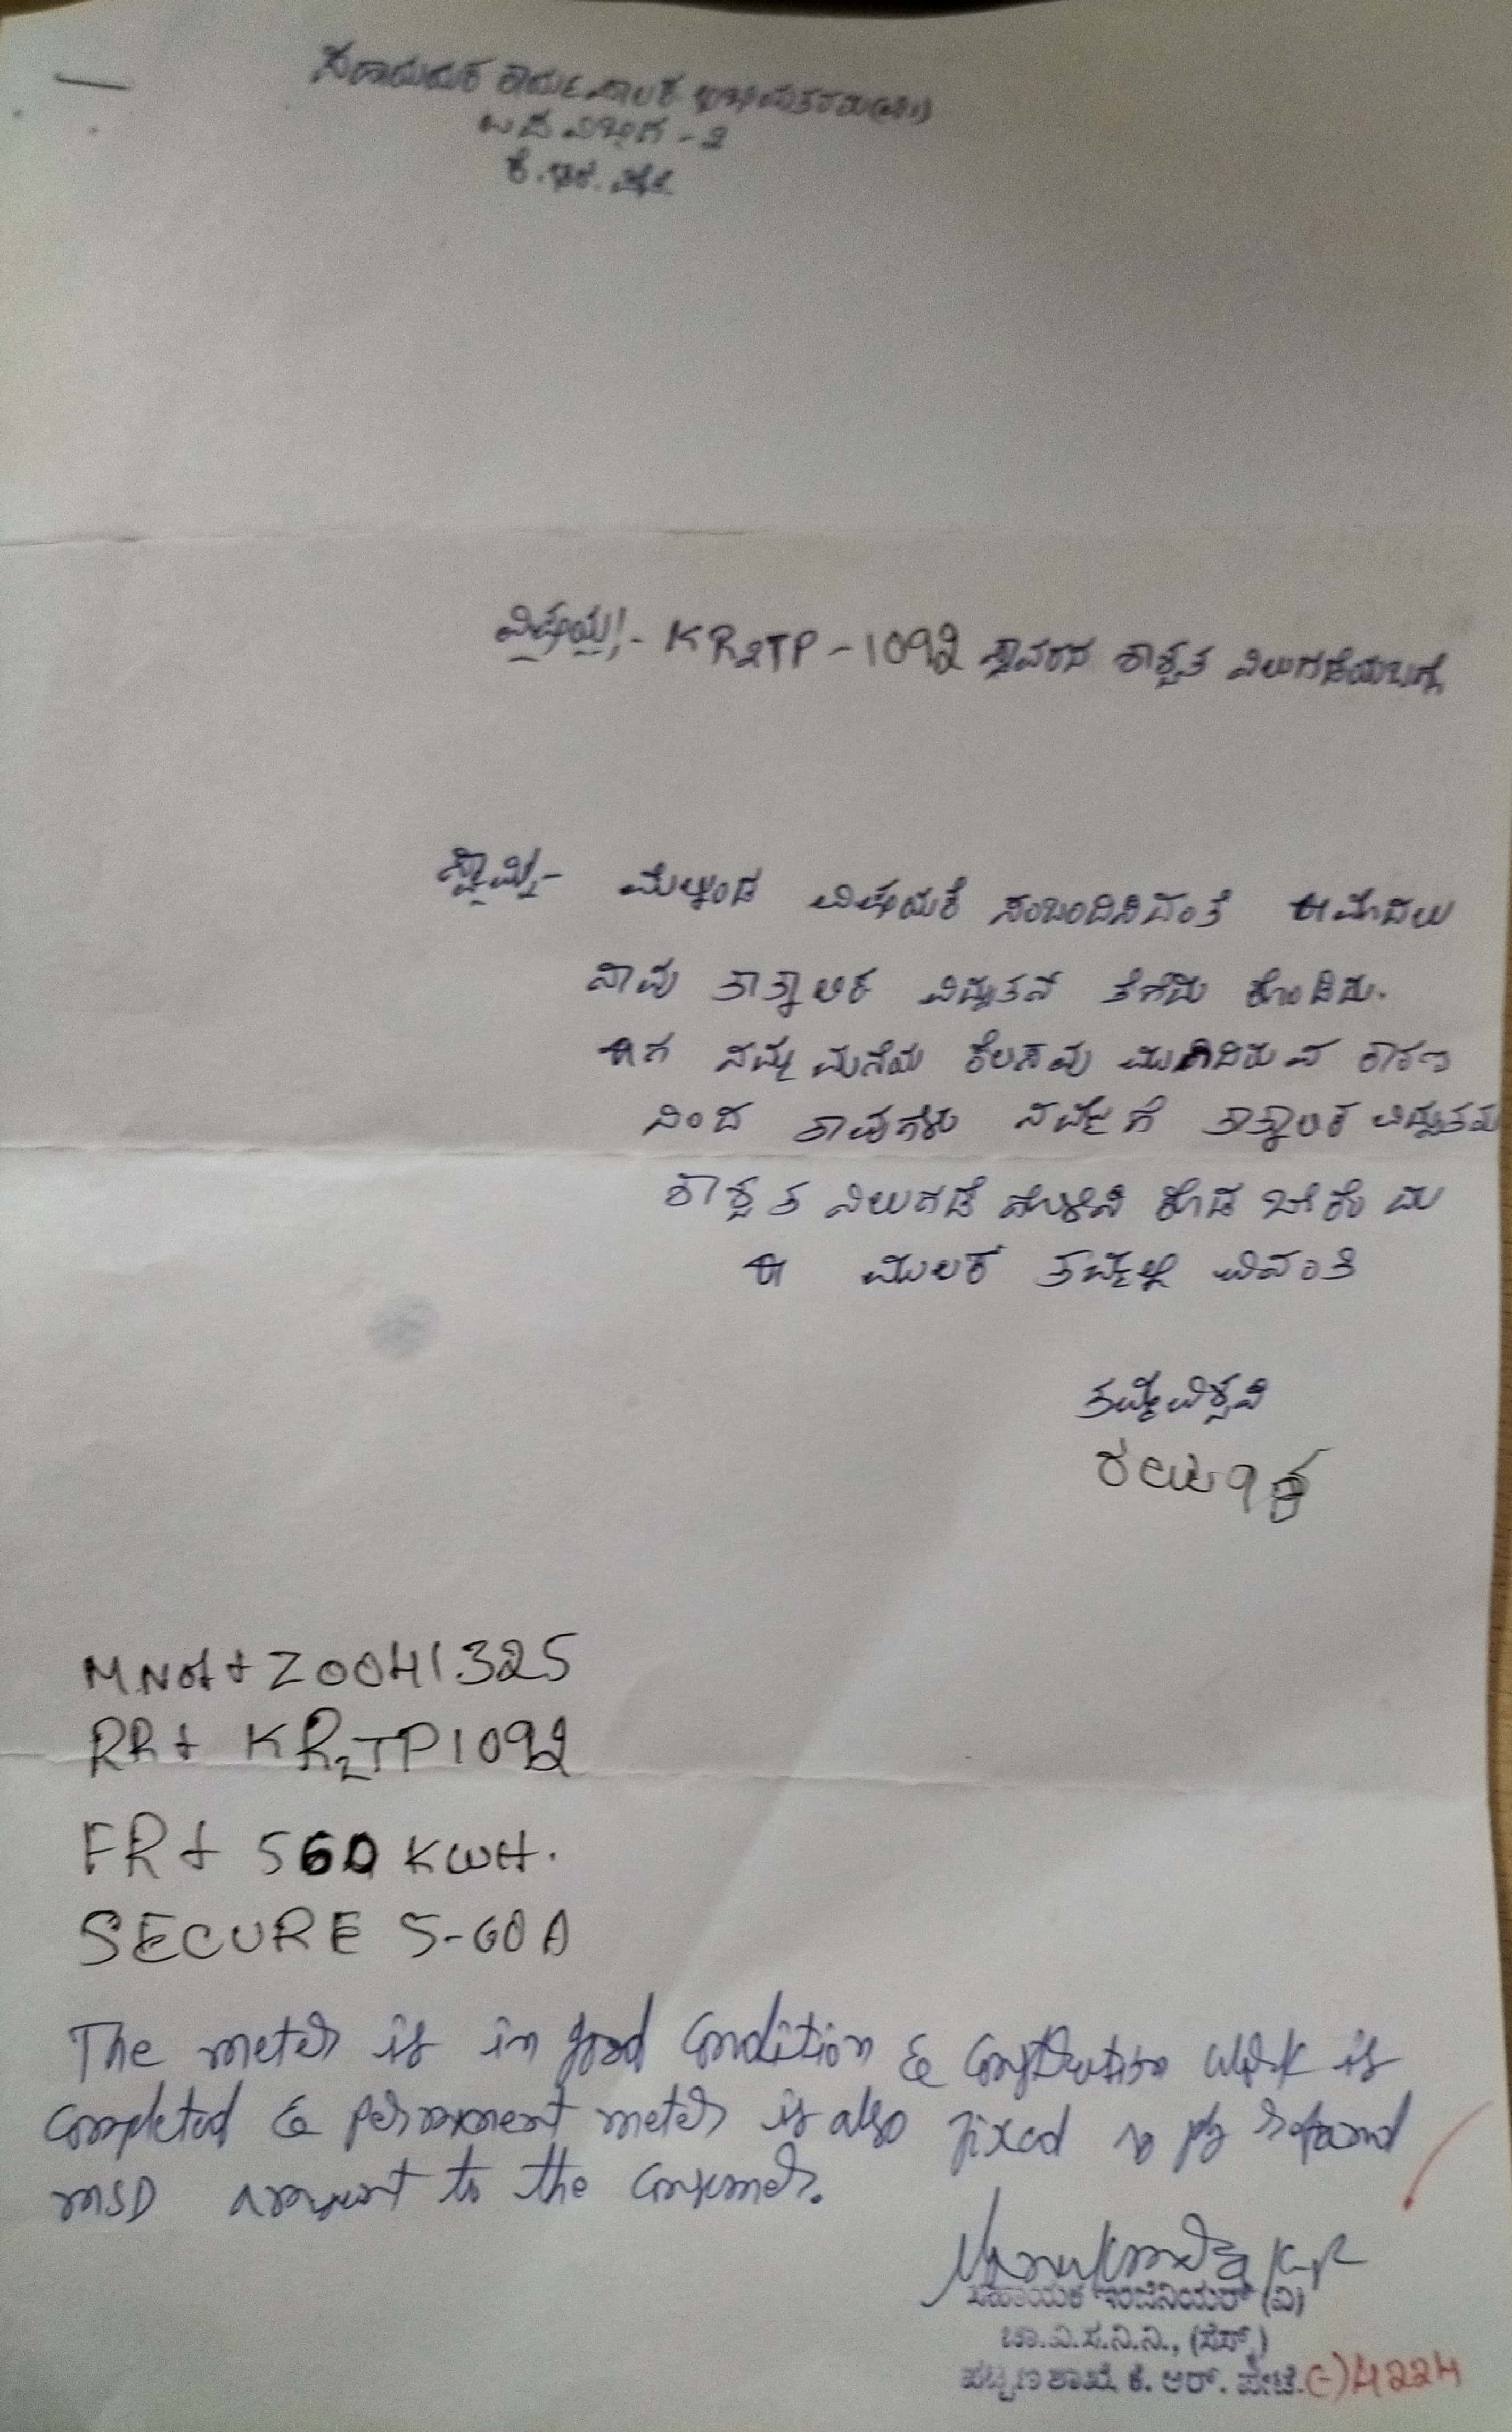 ಸಹಾಯಕ ಕಾರ್ಯಪಾಲಕ
ಉಪ ವಿಭಾಗ - 2
ಕೆ.ಆರ್. ಪೇಟೆ
ವಿಷಯ:- KR2TP - 1092 ಸ್ಥಾವರದ ಶಾಶ್ವತ ನಿಲುಗಡೆಯಬಗ್ಗೆ
ಸ್ವಾಮಿ,- ಮೆಲ್ಕಂಡ ವಿಷಯಕೆ ಸಂಬಂದಿಸಿದಂತೆ ಈ ಮೊದಲು
ನಾವು ತಾತ್ಕಾಲಿಕ ವಿದ್ಯುತನೆ ತೆಗೆದು ಕೊಂಡಿದು.
ಈಗ ನಮ್ಮ ಮನೆಯ ಕೆಲಸವು ಮುಗಿದಿರುವ ಕಾರಣ
ದಿಂದ ತಾವುಗಳು ನಮ್ಮಗೆ ತಾತ್ಕಾಲಿಕ ವಿದ್ಯುತನು
ಶಾಶ್ವತ ನಿಲುಗಡೆ ಗೊಳಿಸಿ ಕೊಡ ಬೇಕೆಂದು
ಈ ಮೂಲಕ ತಮ್ಮಲ್ಲಿ ವಿನಂತಿ
ತಮ್ಮವಿಶ್ವಾಸಿ
MNo:+ Z0041325
RR+ KR2TP1092
FR+ 560 KWH.
SECURE 5-60A
The meter is in good Condition & Construction work is
Completed & permanent meter is also fixed so plz refound
MSD amount to the Consumer.
ಸಹಾಯಕ ಇಂಜಿನಿಯರ್ (ವಿ)
ಚಾ.ವಿ.ಸ.ನಿ.ನಿ., (ಸೆಸ್ಕ್)
ಪಟ್ಟಣ ಶಾಖೆ, ಕೆ. ಆರ್. ಪೇಟೆ. (-)4224